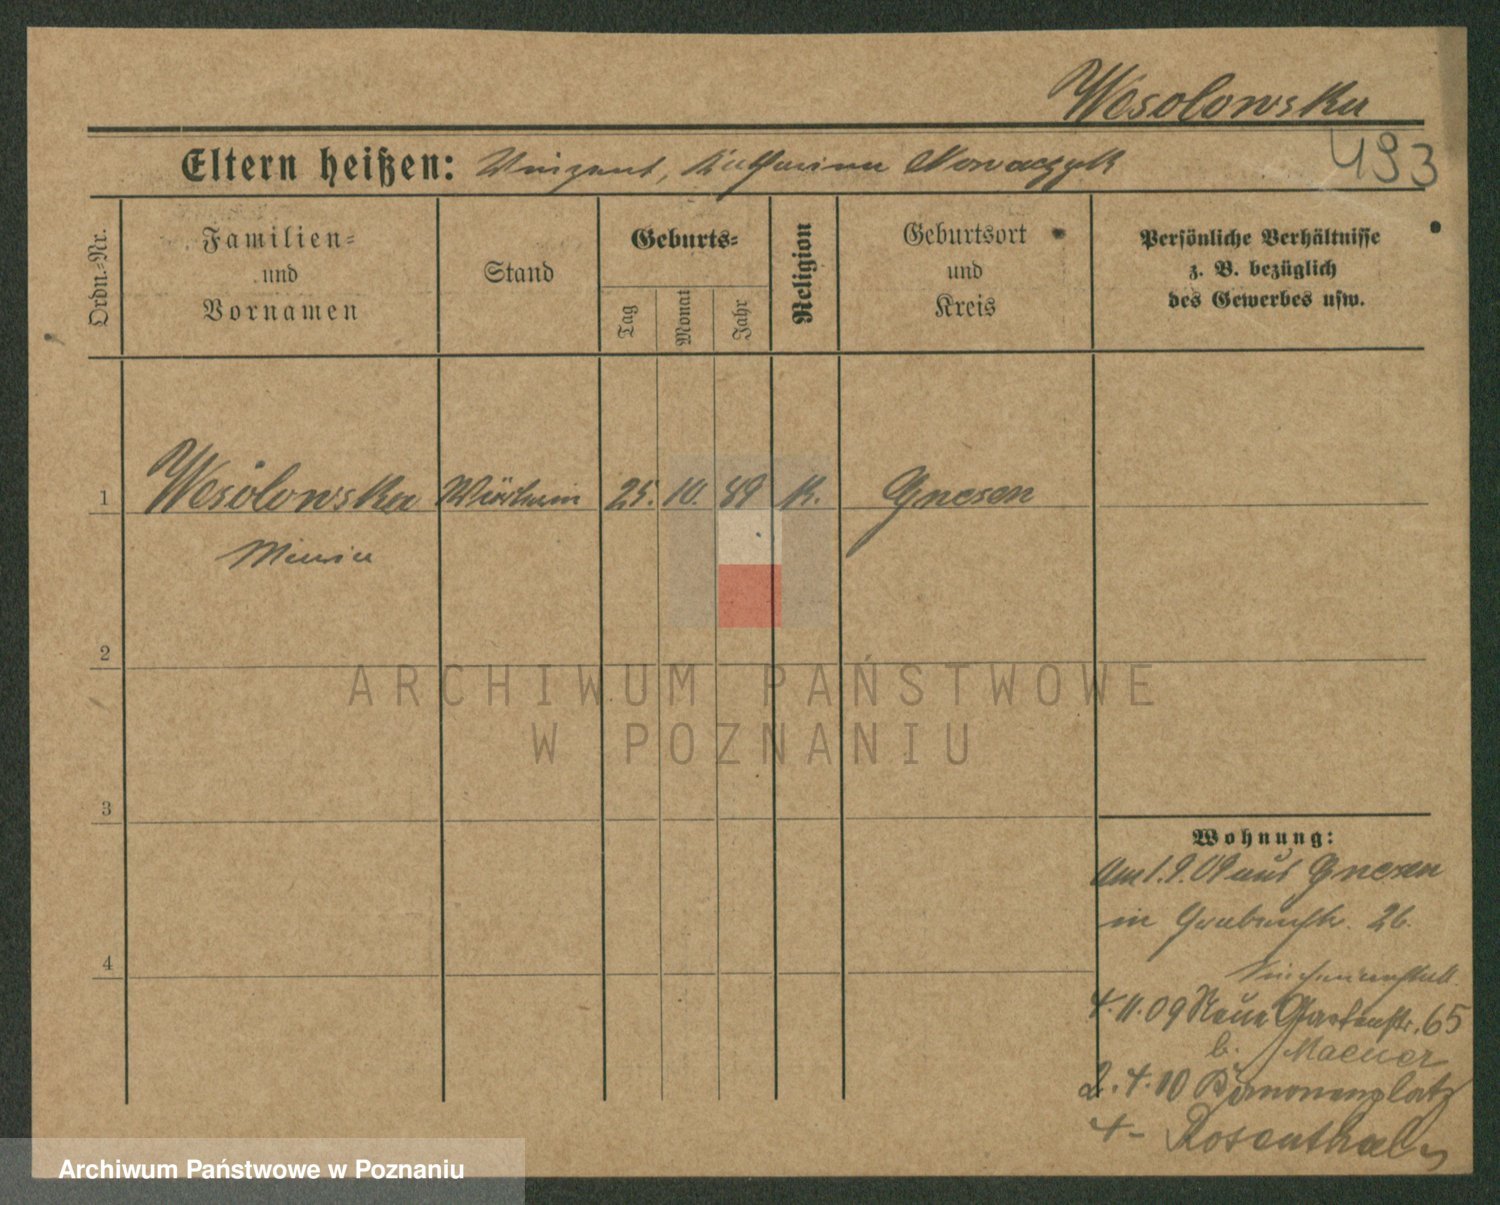 Wesolowska
Eltern heißen: Vinzent, Katharina Nowaczyk
493
Ordn.-Nr.
Familien-
und
Vornamen
Stand
Geburts-
Tag
Monat
Jahr
Religion
Geburtsort
und
Kreis
Persönliche Verhältnisse
z. B. bezüglich
des Gewerbes usw.
1 Wesolowska Wirtin 25. 10. 89 K. Gnesen
Maria
2
ARCHIWUM PAŃSTWOWE
W POZNANIU
3
Wohnung:
am 1.9.09 aus Gnesen
in Grabenstr. 26.
4
4.11.09 Neue Gartenstr. 65
b.
2.4.10 Kanonenplatz
4 - Rosenthal
Archiwum Państwowe w Poznaniu